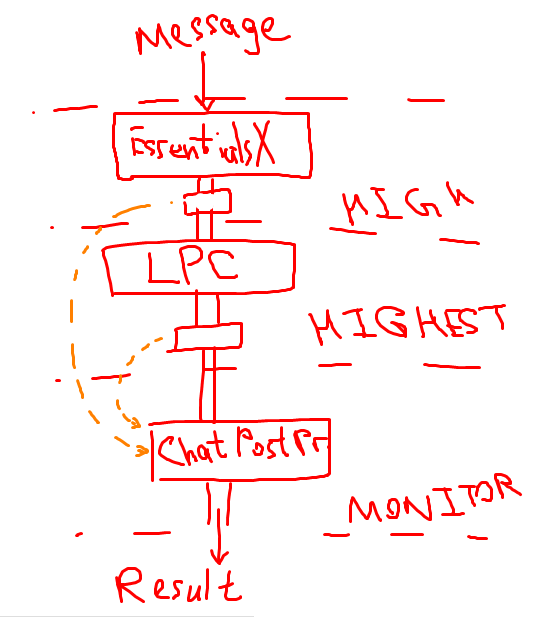 Message
EssentialsX
HIGH
LPC
HIGHEST
ChatPostPr
MONITOR
Result